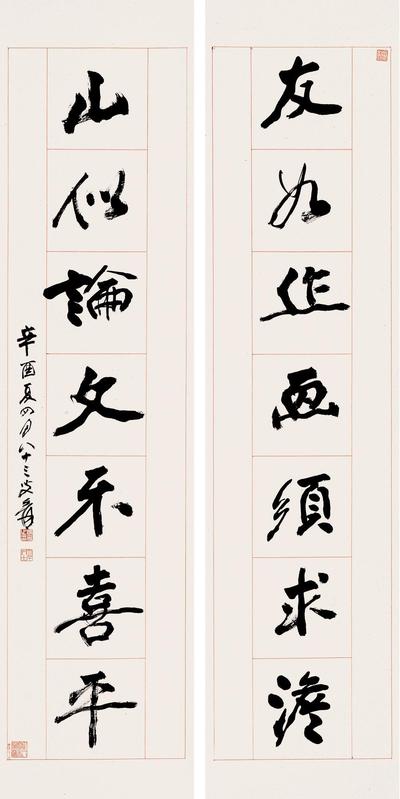 友如作画須求澹
山似論文不喜平
辛酉夏四月八十三叟爰